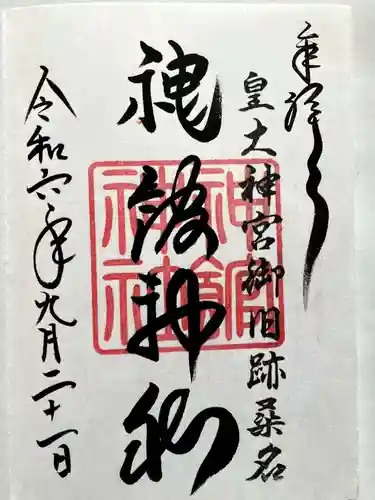 奉拝
皇大神宮御旧跡桑名
神館神社
神館
神社
令和六年九月二十一日